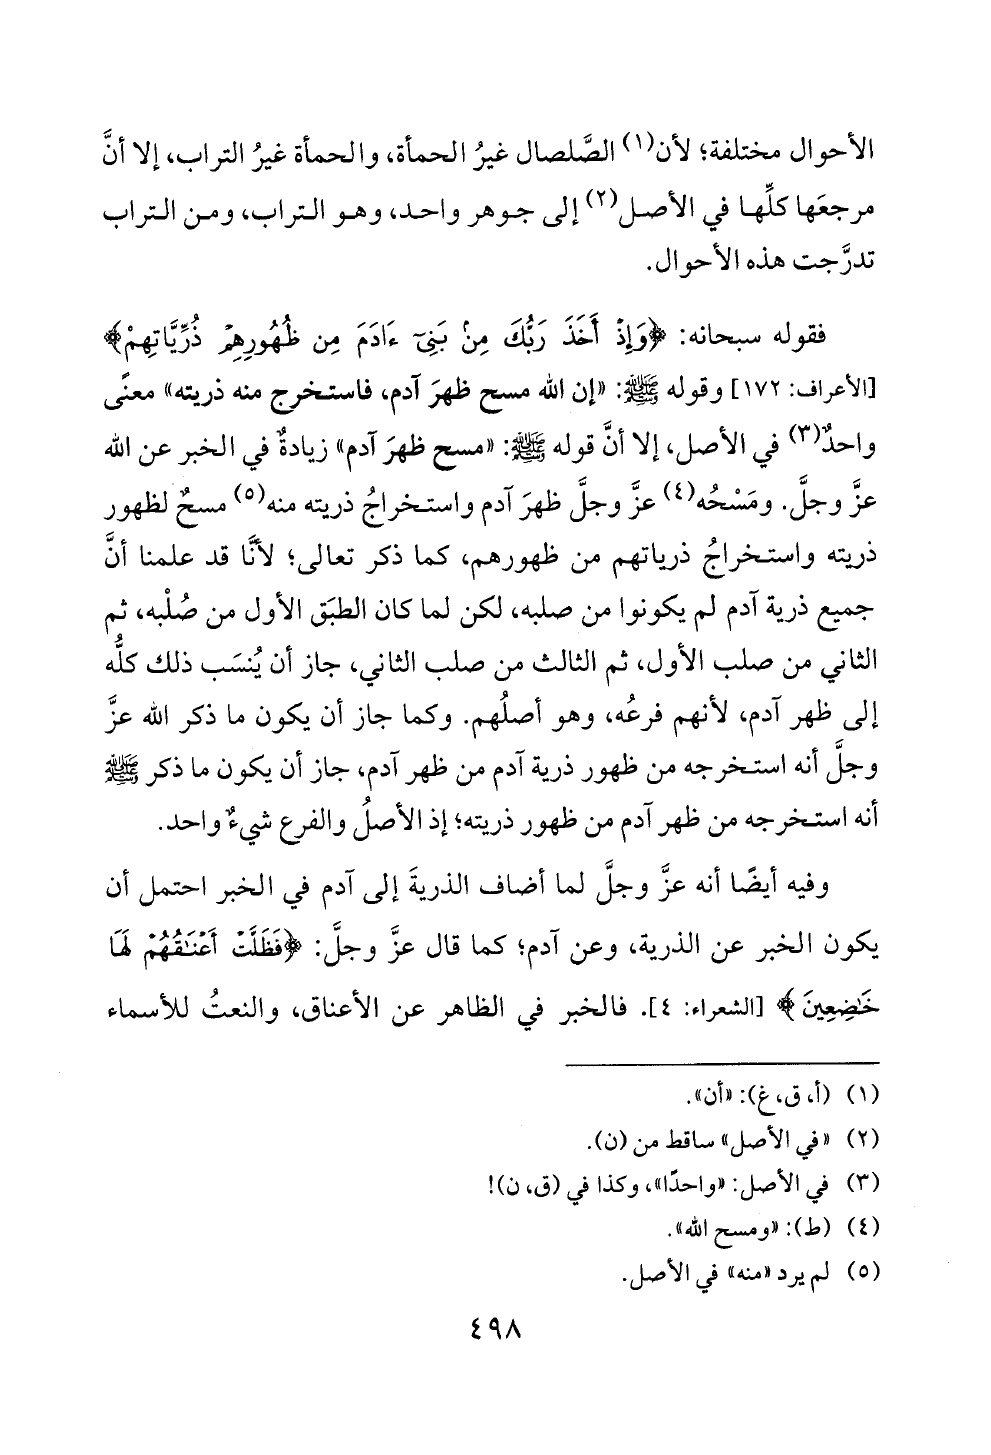 الأحوال مختلفة؛ لأن(١) الصَّلصال غيرُ الحمأة، والحمأة غيرُ التراب، إلا أنَّ
مرجعَها كلِّها في الأصل(٢) إلى جوهر واحد، وهو التراب، ومن التراب
تدرَّجت هذه الأحوال.
فقوله سبحانه: ﴿وَإِذْ أَخَذَ رَبُّكَ مِنۢ بَنِيٓ ءَادَمَ مِن ظُهُورِهِمْ ذُرِّيَّاتِهِمْ﴾
[الأعراف: ١٧٢] وقوله ﷺ: «إن الله مسح ظهرَ آدم، فاستخرج منه ذريته» معنًى
واحدٌ(٣) في الأصل، إلا أنَّ قوله ﷺ: «مسح ظهرَ آدم» زيادةٌ في الخبر عن الله
عزَّ وجلَّ. ومَسْحُه(٤) عزَّ وجلَّ ظهرَ آدم واستخراجُ ذريته منه(٥) مسحٌ لظهور
ذريته واستخراجُ ذرياتهم من ظهورهم، كما ذكر تعالى؛ لأنَّا قد علمنا أنَّ
جميع ذرية آدم لم يكونوا من صلبه، لكن لما كان الطبَق الأول من صُلْبه، ثم
الثاني من صلب الأول، ثم الثالث من صلب الثاني، جاز أن يُنسَب ذلك كلُّه
إلى ظهر آدم، لأنهم فرعُه، وهو أصلُهم. وكما جاز أن يكون ما ذكر الله عزَّ
وجلَّ أنه استخرجه من ظهور ذرية آدم من ظهر آدم، جاز أن يكون ما ذكر ﷺ
أنه استخرجه من ظهر آدم من ظهور ذريته؛ إذ الأصلُ والفرع شيءٌ واحد.
وفيه أيضًا أنه عزَّ وجلَّ لما أضاف الذريةَ إلى آدم في الخبر احتمل أن
يكون الخبر عن الذرية، وعن آدم؛ كما قال عزَّ وجلَّ: ﴿فَظَلَّتْ أَعْنَٰقُهُمْ لَهَا
خَٰضِعِينَ﴾ [الشعراء: ٤]. فالخبر في الظاهر عن الأعناق، والنعتُ للأسماء
(١) (أ، ق، غ): «أن».
(٢) «في الأصل» ساقط من (ن).
(٣) في الأصل: «واحدًا»، وكذا في (ق، ن)!
(٤) (ط): «ومسح الله».
(٥) لم يرد «منه» في الأصل.
٤٩٨